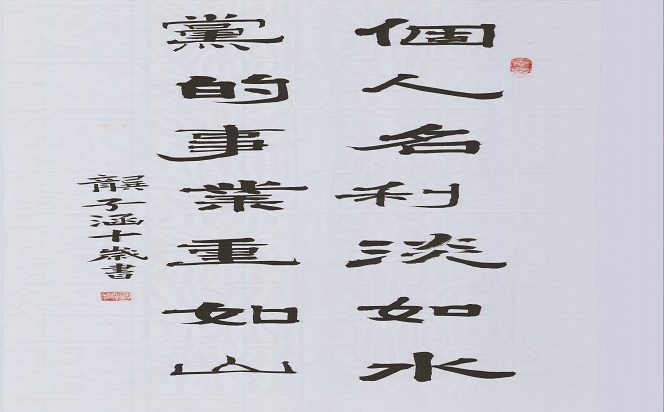 個人名利淡如水
黨的事業重如山
龔子涵十歲書